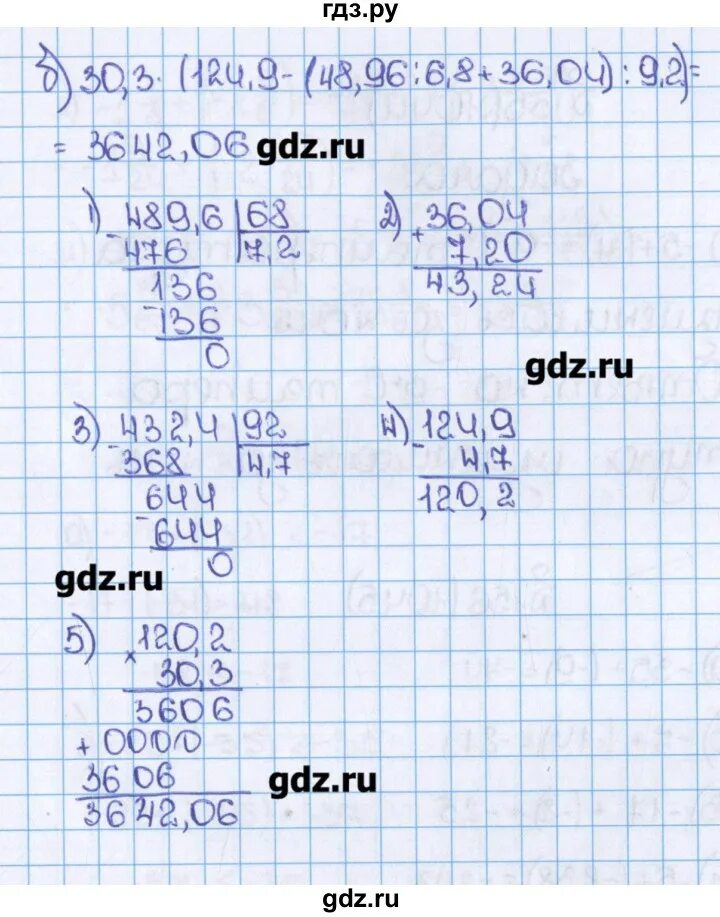 гдз.ру
б) 30,3 · (124,9 - (48,96 : 6,8 + 36,04) : 9,2) =
= 3642,06 gdz.ru
1) 489,6 | 68
- 476 7,2
136
- 136
0
2) 36,04
+ 7,20
43,24
gdz.ru
3) 432,4 | 92
- 368 4,7
644
- 644
0
4) 124,9
- 4,7
120,2
gdz.ru
5) 120,2
× 30,3
3606
+ 0000
3606
3642,06
gdz.ru
gdz.ru